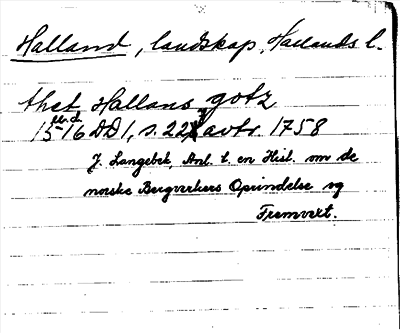 Halland, landskap, Hallands l.
thet Hallans gotz
15 16 DD1, s. 22 avtr. 1758
J. Langebek, Anl. t. en Hist. om de
norske Bergverkers Oprindelse og
Fremvext.